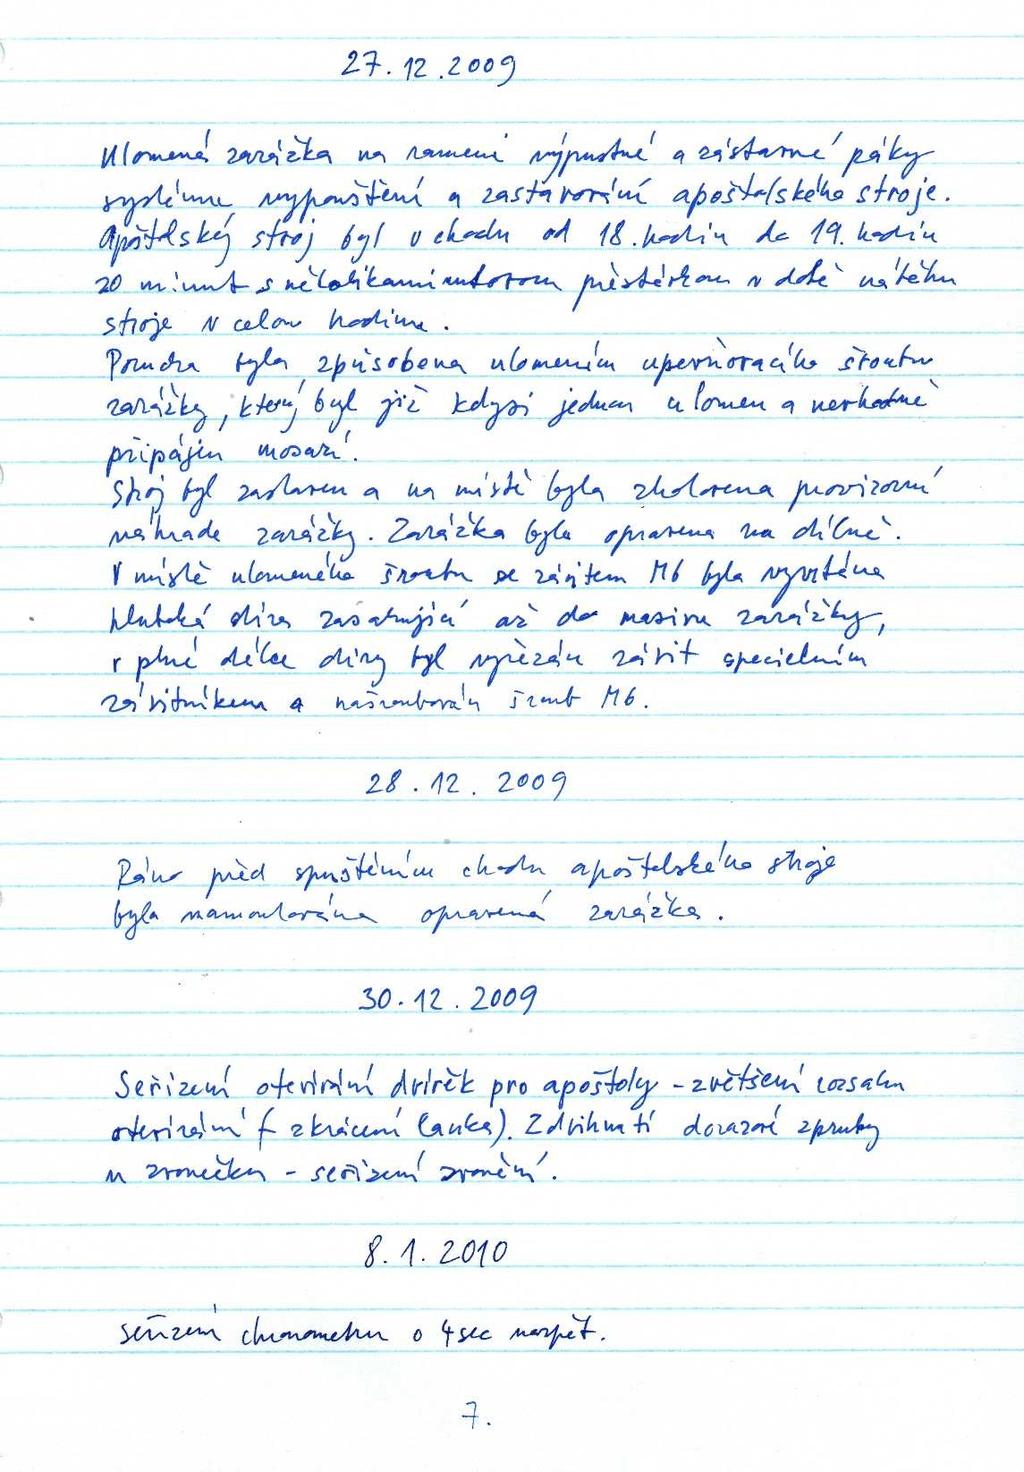 27.12.2009
Ulomená zarážka na rameni výpustné a zástavné páky
systému vypouštění a zastavování apoštolského stroje.
Apoštolský stroj byl v chodu od 18. hodin do 19. hodin
20 minut s několikaminutovou přestávkou v době náběhu
stroje v celou hodinu.
Porucha byla způsobena ulomením upevňovacího šroubu
zarážky, který byl již kdysi jednou ulomen a nevhodně
připájen mosazí.
Stroj byl zastaven a na místě byla zhotovena provizorní
náhrada zarážky. Zarážka byla opravena na dílně.
V místě ulomeného šroubu se závitem M6 byla vyvrtána
hluboká díra zasahující až do masivu zarážky,
v plné délce díry byl vyřezán závit specielním
závitníkem a našroubován šroub M6.
28.12.2009
Ráno před spuštěním chodu apoštolského stroje
byla namontována opravená zarážka.
30.12.2009
Seřízení otevírání dvířek pro apoštoly - zvětšení rozsahu
otevírání (zkrácení lanka). Zdvihnutí dorazové zpruhy
u zvonečku - seřízení zvonění.
8.1.2010
Seřízení chronometru o 4 sec nazpět.
7.